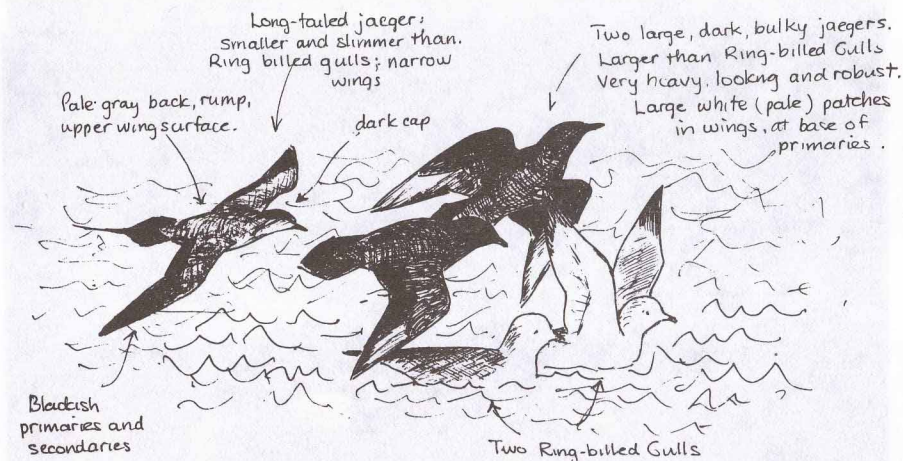 Long-tailed jaeger:
Smaller and slimmer than.
Ring billed gulls; narrow
wings
Two large, dark, bulky jaegers.
Larger than Ring-billed Gulls
Very heavy. lookng and robust.
Large white (pale) patches
in wings, at base of
primaries.
Pale gray back, rump,
upper wing surface.
dark cap
Blackish
primaries and
secondaries
Two Ring-billed Gulls